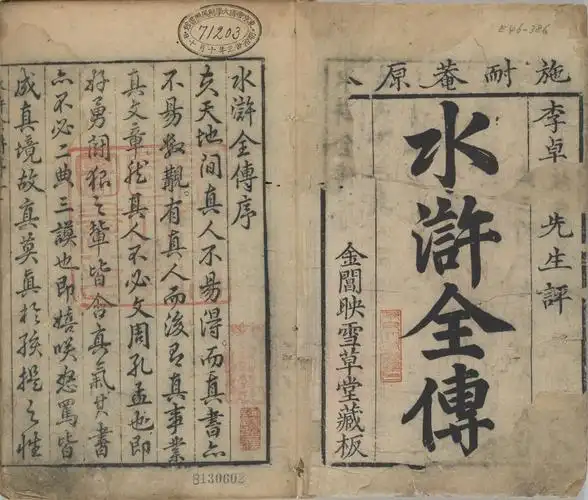 E46-386
施耐菴原
李卓 先生評
水滸全傳
金閶映雪草堂藏板
71203
水滸全傳序
天地間真人不易得而真書亦
不易數覯有真人而後有真事業
真文章然真人不必文周孔孟也即
好勇鬪狠之輩皆含真氣其書
亦不必二典三謨也即嬉咲怒罵皆
成真境故真莫真於孩提之性
8130602